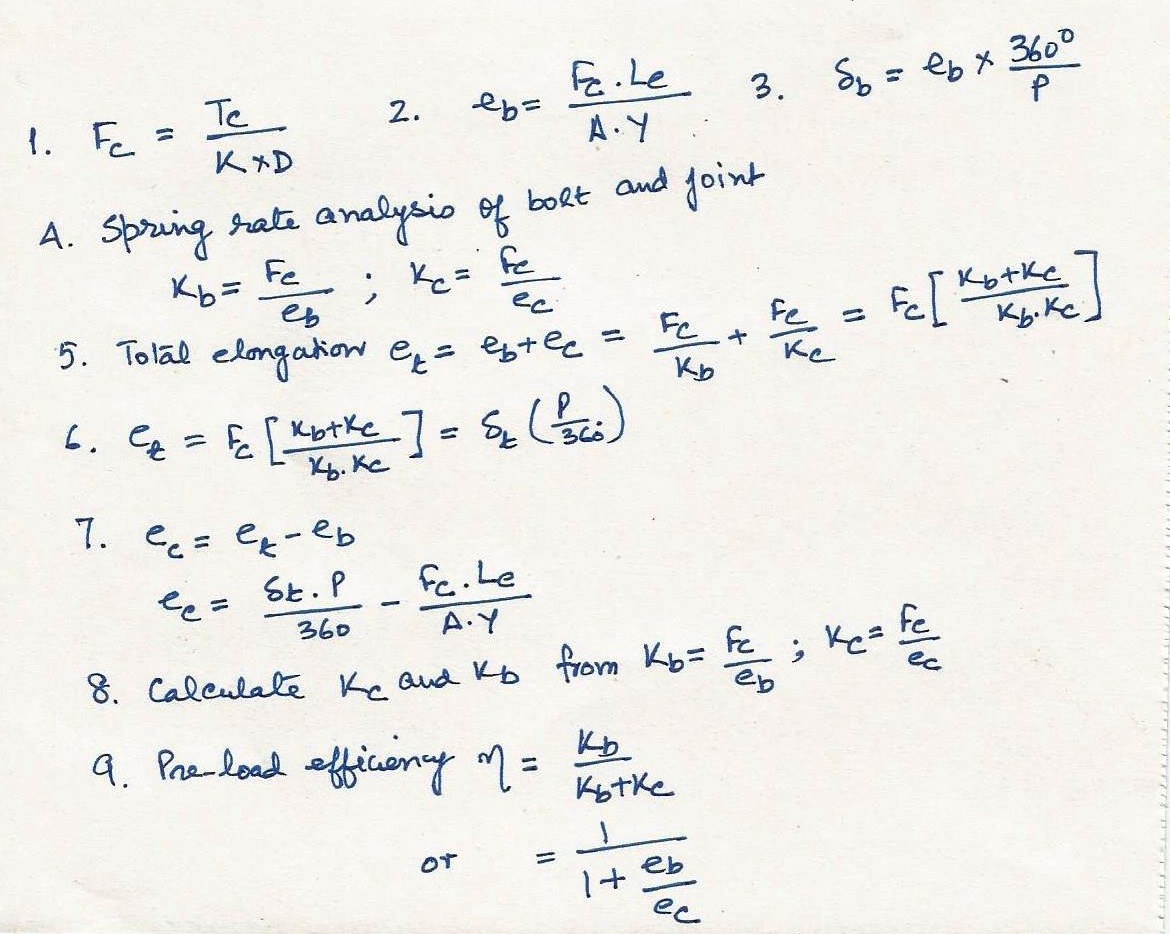 1. Fc = Tc / (K × D) 2. eb = Fc . Le / (A . Y) 3. δb = eb × 360° / P
4. Spring rate analysis of bolt and joint
Kb = Fc / eb ; Kc = Fc / ec
5. Total elongation et = eb + ec = Fc / Kb + Fc / Kc = Fc [ (Kb + Kc) / (Kb . Kc) ]
6. et = Fc [ (Kb + Kc) / (Kb . Kc) ] = δt ( P / 360 )
7. ec = et - eb
ec = δt . P / 360 - Fc . Le / (A . Y)
8. Calculate Kc and Kb from Kb = Fc / eb ; Kc = Fc / ec
9. Pre-load efficiency η = Kb / (Kb + Kc)
or = 1 / (1 + eb / ec)